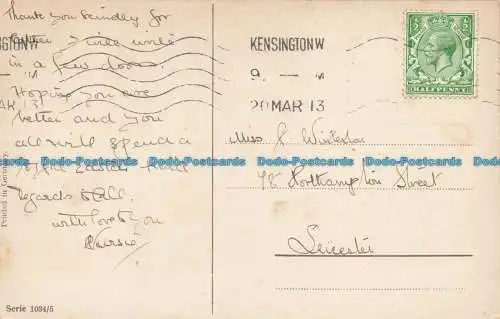 Thank you kindly for
letter I will write
in a few days
Hoping you are
better and you
all will spend a
Easter
regards to all
with love to you
Nursie
Printed in Germany.
Serie 1034/5
KENSINGTON W
9
20 MAR 13
HALFPENNY
Miss J Winterton
98 Northampton Street
Leicester
Dodo-Postcards Dodo-Postcards Dodo-Postcards Dodo-Postcards